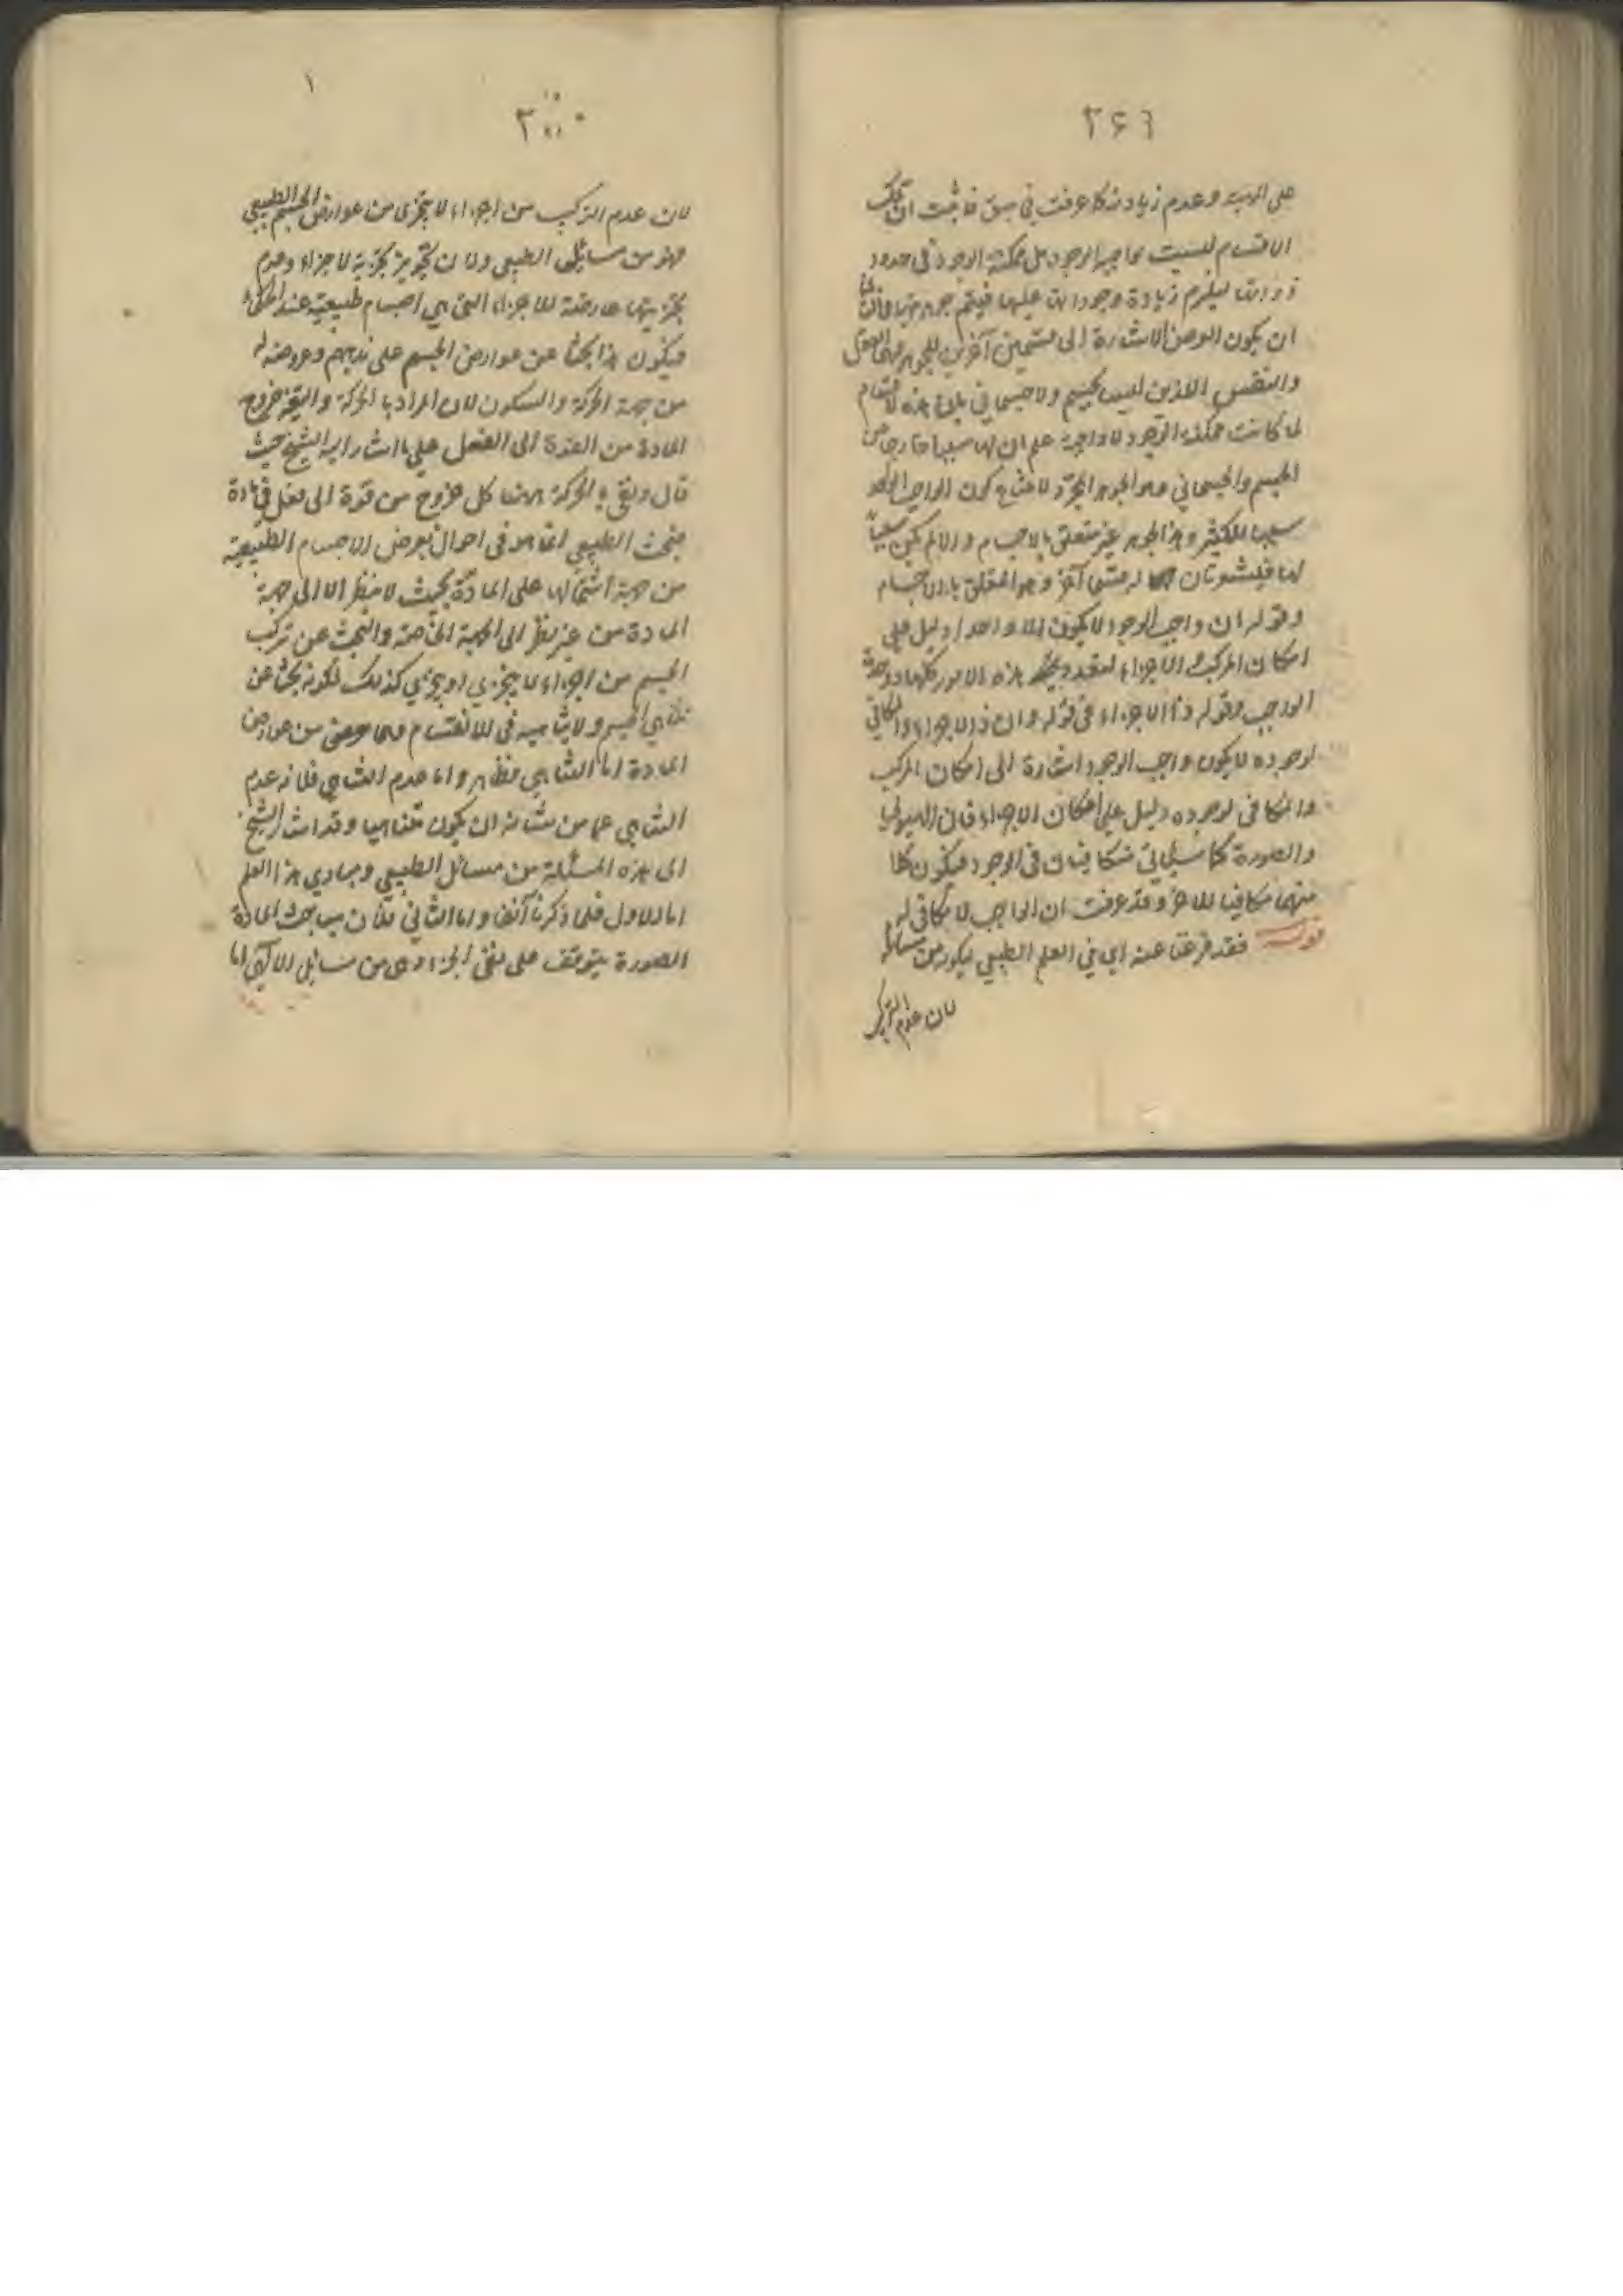 ٢٤٦
على المهية وعدم زيادته كما عرفت في سبق فاثبت ان تلك
الاقسام ليست بواجبة الوجود بل ممكنة الوجود في حدود
ذواتها ليلزم زيادة وجوداتها عليها فيتم جوهريتها
ان يكون الغرض الاشارة الى قسمين آخرين للجوهر وهما العقل
والنفس اللذين ليسا بجسم ولا جسماني فان هذه الاقسام
لما كانت ممكنة الوجود لا واجبة علم ان لها سببا خارجا عن
الجسم والجسماني وهو الجوهر المجرد لامتناع كون الواجب الواحد
سببا للكثير وهذا الجوهر غير متعلق بالاجسام والا لم يكن سببا
لها فيثبت ان له قسما آخر وهو المتعلق بالاجسام
وقوله ان واجب الوجود لا يكون الا واحدا دليل على
امكان المركب والاجزاء لتعدد هذه الامور كلها ووحدة
الواجب وقوله ذا الاجزاء في قوله وان ذا الاجزاء والمكافي
لوجوده لا يكون واجب الوجود اشارة الى امكان المركب
والمكافي لوجوده دليل على امكان الاجزاء فان الهيولى
والصورة كما سيأتي متكافيان في الوجود فيكون كل
منهما مكافيا للآخر وقد عرفت ان الواجب لا مكافي له
قوله فقد فرغنا عنه اي في العلم الطبيعي ليكون من مسائله
لان عدم التركب
١
٣
لان عدم التركيب من اجزاء لا يتجزى من عوارض الجسم الطبيعي
فهو من مسائل الطبيعي ولان تجويز تجزية الاجزاء وعدم
تجزيتها عارضة للاجزاء التي هي اجسام طبيعية عند الحكماء
فيكون هذا بحثا عن عوارض الجسم على مذهبهم وعروضه له
من جهة الحركة والسكون لان المراد بالحركة والتغير خروج
المادة من القوة الى الفعل على ما اشار اليه الشيخ حيث
قال ونعني بالحركة ههنا كل خروج من قوة الى فعل في مادة
فبحث الطبيعي انما هو في احوال تعرض الاجسام الطبيعية
من جهة اشتمالها على المادة بحيث لا ينظر الا الى جهة
المادة من غير نظر الى الجهة الخاصة والبحث عن تركب
الجسم من اجزاء لا يتجزى او يتجزى كذلك لكونه بحثا عن
تناهي الجسم ولا تناهيه في الانقسام وهما من عوارض
المادة اما التناهي فظاهر واما عدم التناهي فلانه عدم
التناهي عما من شانه ان يكون متناهيا وقد اشار الشيخ
الى هذه المسئلة من مسائل الطبيعي ومبادي هذا العلم
اما الاول فلما ذكرنا آنفا واما الثاني فلان مباحث المادة
الصورة يتوقف على نفي الجزء وهي من مسائل الالهي اما